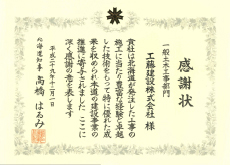 感謝状
一般土木工事部門
工藤建設株式会社 様
貴社は北海道が発注した工事の
施工に当たり豊富な経験と卓越
した技術をもって特に優れた成
果を収められ本道の建設事業の
推進に寄与されました ここに
深く感謝の意を表します
平成二十九年十二月一日
北海道知事 高橋はるみ